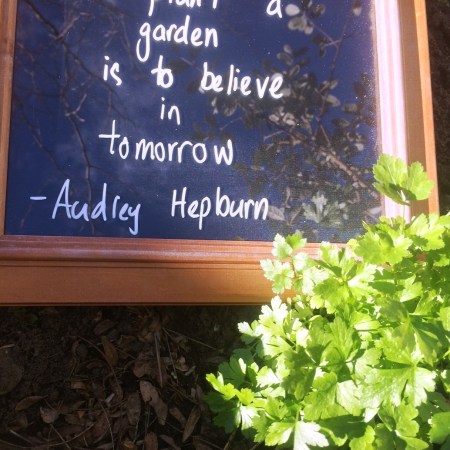 plant a
garden
is to believe
in
tomorrow
- Audrey Hepburn